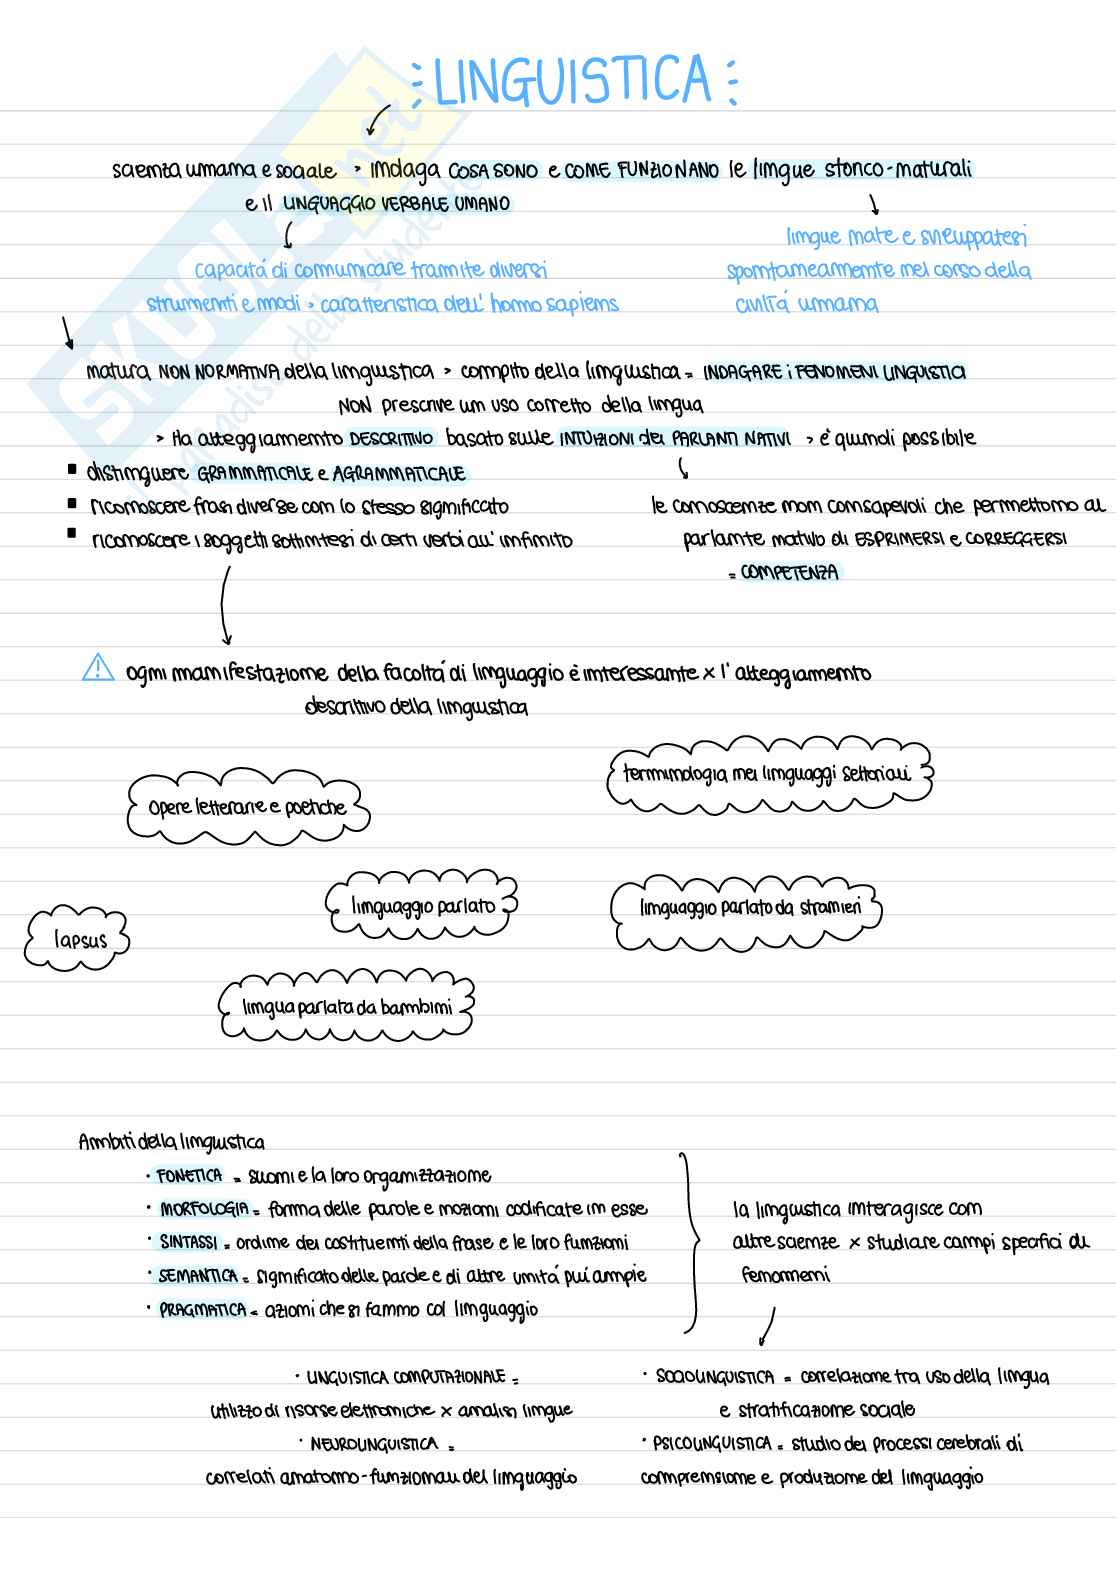 LINGUISTICA
scienza umana e sociale > indaga COSA SONO e COME FUNZIONANO le lingue storico-naturali
e il LINGUAGGIO VERBALE UMANO
lingue nate e sviluppatesi
spontaneamente nel corso della
civiltà umana
capacità di comunicare tramite diversi
strumenti e modi > caratteristica dell' homo sapiens
natura NON NORMATIVA della linguistica > compito della linguistica = INDAGARE i FENOMENI LINGUISTICI
NON prescrive un uso corretto della lingua
> Ha atteggiamento DESCRITTIVO basato sulle INTUIZIONI dei PARLANTI NATIVI > è quindi possibile
▪ distinguere GRAMMATICALE e AGRAMMATICALE
▪ riconoscere frasi diverse con lo stesso significato
▪ riconoscere i soggetti sottintesi di certi verbi all' infinito
le conoscenze non consapevoli che permettono al
parlante nativo di ESPRIMERSI e CORREGGERSI
= COMPETENZA
ogni manifestazione della facoltà di linguaggio è interessante x l' atteggiamento
descrittivo della linguistica
terminologia nei linguaggi settoriali
opere letterarie e poetiche
linguaggio parlato
linguaggio parlato da stranieri
lapsus
lingua parlata da bambini
Ambiti della linguistica
· FONETICA = suoni e la loro organizzazione
· MORFOLOGIA = forma delle parole e nozioni codificate in esse
· SINTASSI = ordine dei costituenti della frase e le loro funzioni
· SEMANTICA = significato delle parole e di altre unità piú ampie
· PRAGMATICA = azioni che si fanno col linguaggio
la linguistica interagisce con
altre scienze x studiare campi specifici di
fenomeni
· LINGUISTICA COMPUTAZIONALE =
utilizzo di risorse elettroniche x analisi lingue
· NEUROLINGUISTICA =
correlati anatomo-funzionali del linguaggio
· SOCIOLINGUISTICA = correlazione tra uso della lingua
e stratificazione sociale
· PSICOLINGUISTICA = studio dei processi cerebrali di
comprensione e produzione del linguaggio
SKUOLA.net
il paradiso dello studente